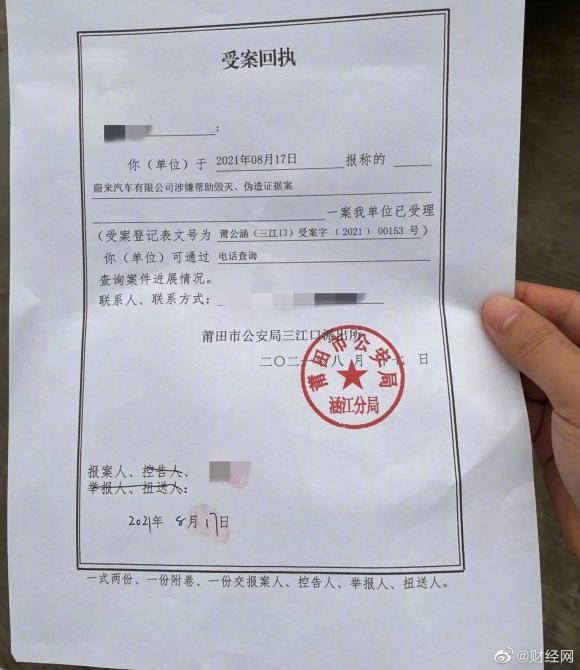 受案回执
：
你（单位）于 2021年08月17日 报称的
蔚来汽车有限公司涉嫌帮助毁灭、伪造证据案
一案我单位已受理
（受案登记表文号为 莆公涵（三江口）受案字（2021）00153 号）
你（单位）可通过 电话查询
查询案件进展情况。
联系人、联系方式：
莆田市公安局三江口派出所
二〇二一年八月十七日
莆田市公安局
涵江分局
报案人、控告人、
举报人、扭送人：
2021年 8月17日
一式两份、一份附卷、一份交报案人、控告人、举报人、扭送人。
@财经网